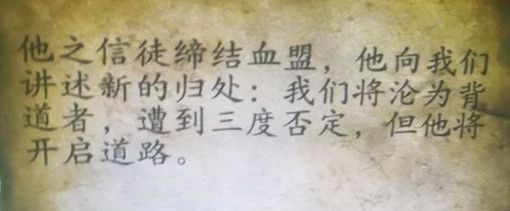 他之信徒缔结血盟，他向我们
讲述新的归处：我们将沦为背
道者，遭到三度否定，但他将
开启道路。